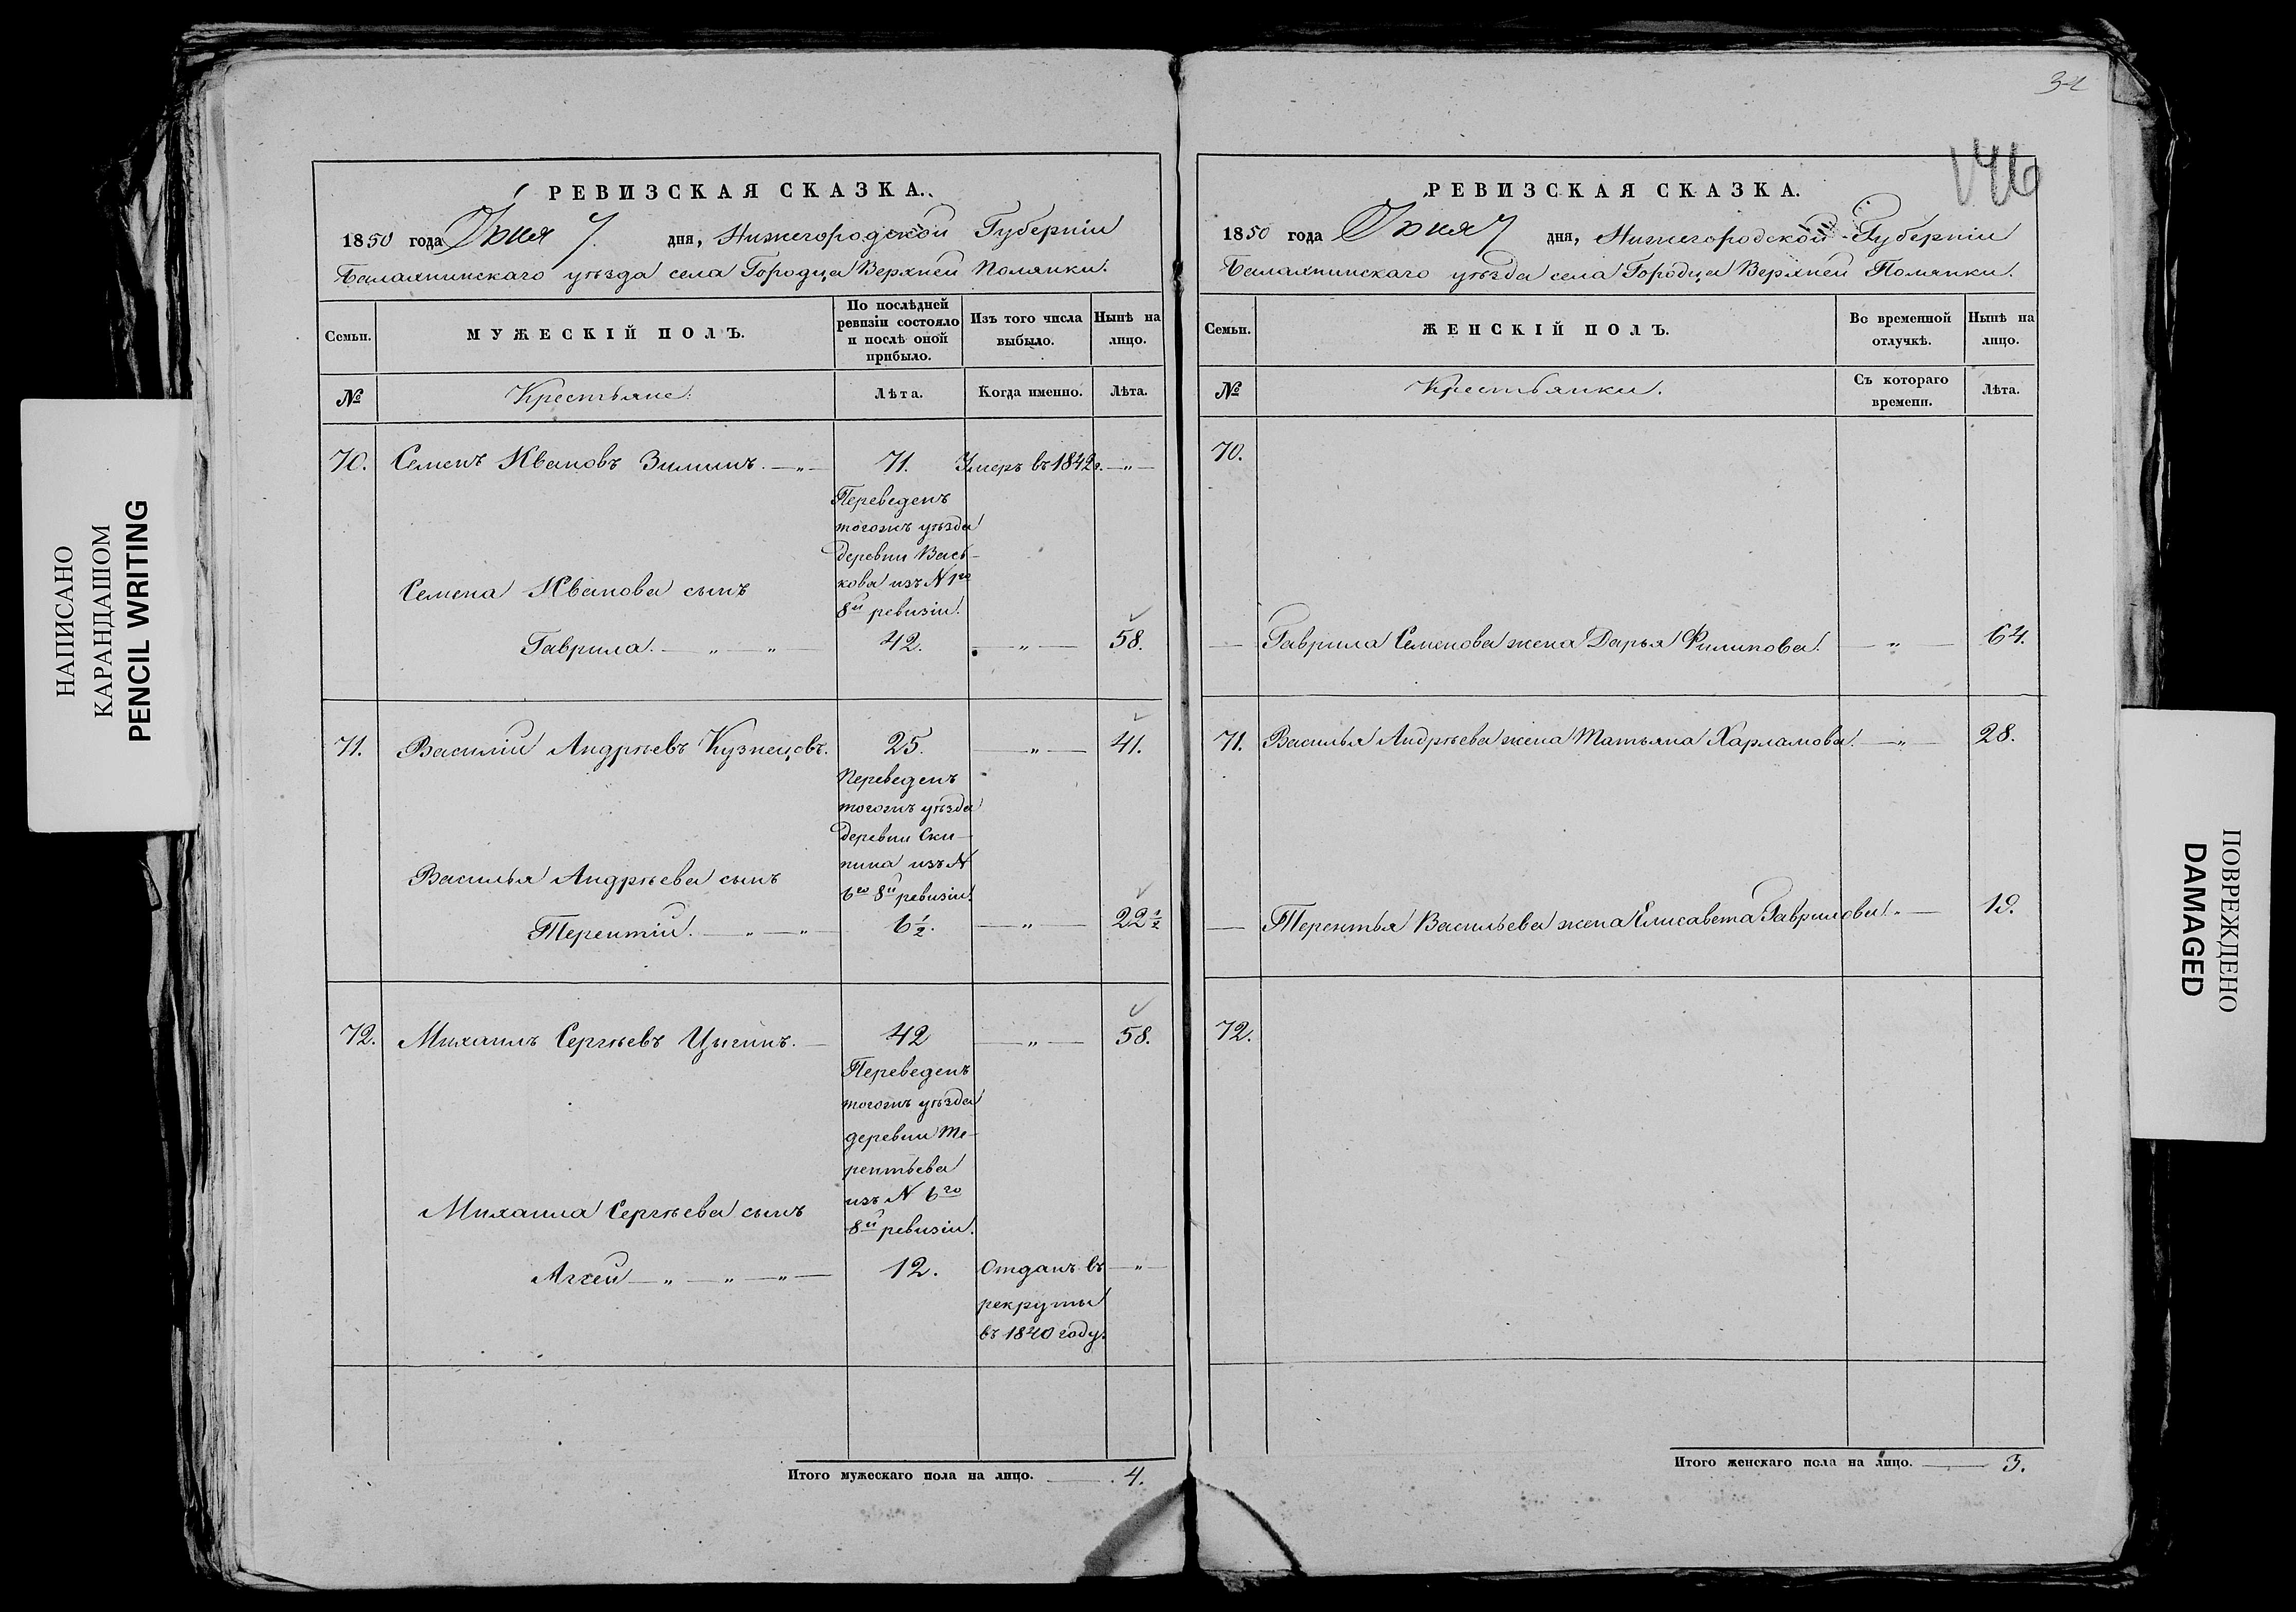 НАПИСАНО
КАРАНДАШОМ
PENCIL WRITING
РЕВИЗСКАЯ СКАЗКА.
1850 года Июня 7. дня, Нижегородской Губерніи
Балахнинскаго уѣзда села Городца Верхней Полянки.
Семьи.
МУЖЕСКІЙ ПОЛЪ.
По послѣдней
ревизіи состояло
и послѣ оной
прибыло.
Изъ того числа
выбыло.
Нынѣ на
лицо.
№
Крестьяне.
Лѣта.
Когда именно.
Лѣта.
70. Семенъ Ивановъ Зиминъ. — „ — 71. Умеръ въ 1842 г. — „ —
Переведенъ
тогожъ уѣзда
деревни Вась-
кова изъ N 1го
8й ревизіи.
Семена Иванова сынъ
Гаврила. — „ — „ — 42. — „ — 58.
71. Василій Андрѣевъ Кузнецовъ. 25. — „ — 41.
Переведенъ
тогожъ уѣзда
деревни Ски-
пина изъ N
6го 8й ревизіи.
Василья Андрѣева сынъ
Терентій. — „ — „ — 6 1/2. — „ — 22 1/2
72. Михаилъ Сергѣевъ Цыгинъ. — 42 — „ — 58.
Переведенъ
тогожъ уѣзда
деревни Те-
рентьева
изъ N 6го
8й ревизіи.
Михаила Сергѣева сынъ
Аггей — „ — „ — „ — 12. Отданъ въ — „ —
рекруты
въ 1840 году.
Итого мужескаго пола на лицо. — 4.
32
146
РЕВИЗСКАЯ СКАЗКА.
1850 года Июня 7 дня, Нижегородской Губерніи
Балахнинскаго уѣзда села Городца Верхней Полянки.
Семьи.
ЖЕНСКІЙ ПОЛЪ.
Во временной
отлучкѣ.
Нынѣ на
лицо.
№
Крестьянки.
Съ котораго
времени.
Лѣта.
70.
— Гаврила Семенова жена Дарья Филипова. — „ — 64.
71. Василья Андрѣева жена Татьяна Харламова. — „ — 28.
— Терентья Васильева жена Елисавета Гаврилова. „ — 19.
72.
Итого женскаго пола на лицо. — 3.
ПОВРЕЖДЕНО
DAMAGED